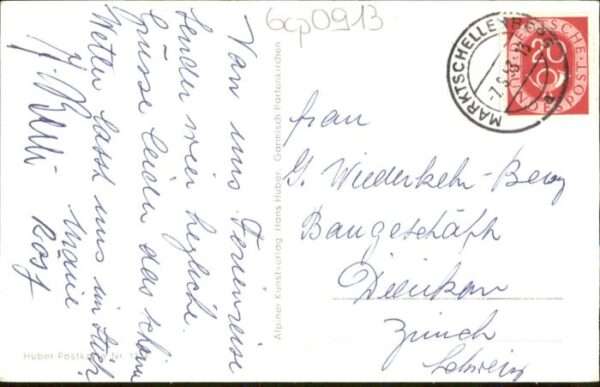 6cp0913
Von uns Ferienreise
senden wir herzliche
Grüsse leider das schöne
Wetter lasst uns im Stich
Marie
Rosy
Alpiner Kunstverlag Hans Huber, Garmisch Partenkirchen
Huber Postkarte Nr.
MARKTSCHELLENBERG
DEUTSCHE
20
BUNDESPOST
Frau
G. Wiederkehr-Berg
Baugeschäft
Dietikon
Zürich
Schweiz